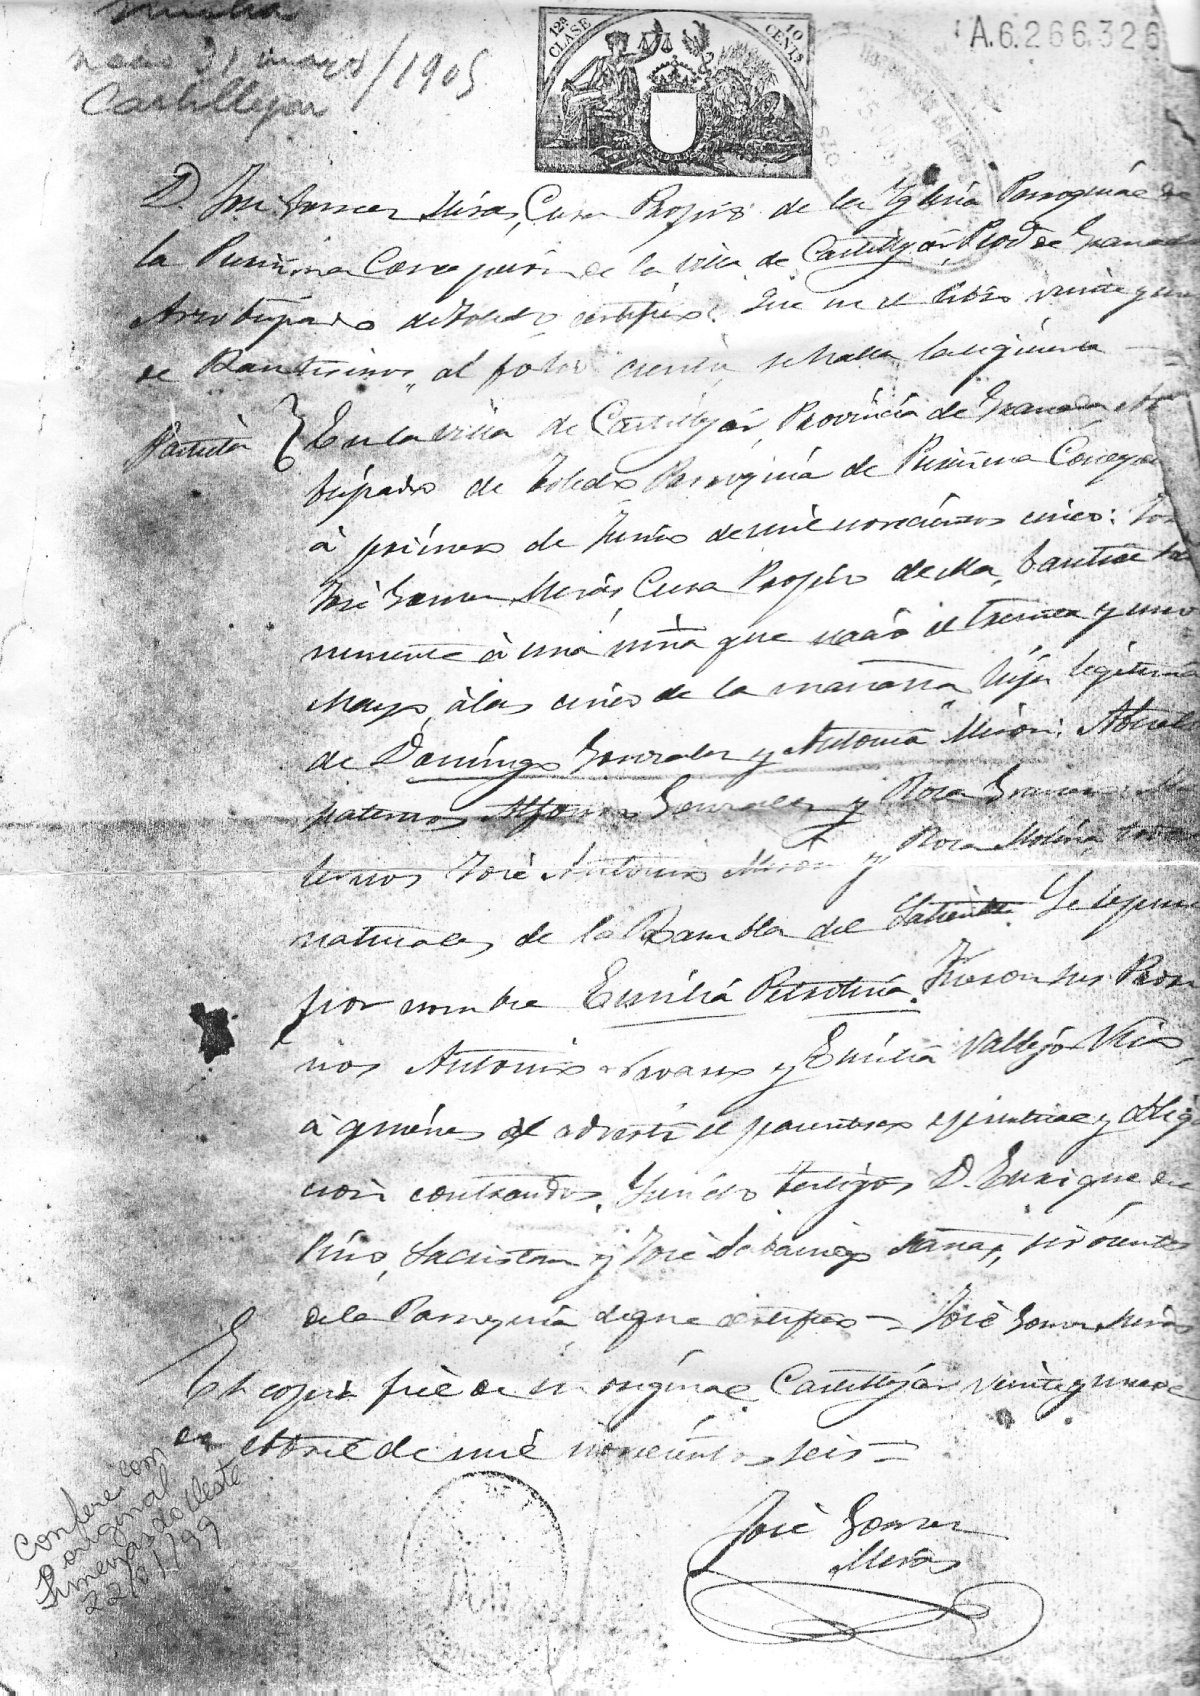 12ª CLASE 10 CENTS
A.6.266.326
31 mayo/1905
Castillejar
D. José Gomez Mirás, Cura Propio de la Yglesia Parroquial de
la Purisima Concepcion de la villa de Castillejar, Prov.ª de Granada
Arzobispado de Toledo, certifico: Que en el libro veinte y un
de Bautismos, al folio ciento, se halla la siguiente
Partida } En la villa de Castillejar, Provincia de Granada,
bispado de Toledo Parroquia de Purisima Concepcion
à primero de Junio de mil novecientos cinco:
José Gomez Mirás, Cura Propio de ella, bauticé
nemente à una niña que nació el treinta y uno
Mayo à las cinco de la mañana, hija legitima
de Domingo Gonzalez y Antonia Miron: Abuelos
paternos Alfonso Gonzalez y Rosa
ternos José Antonio Miron y Rosa Molina, todos
naturales de la Rambla del Se le puso
por nombre Emilia Petrolina. Fueron sus Padri
nos Antonio y Emilia Vallejo
à quienes advertí el parentesco espiritual y obliga
cion contraidos. Siendo testigos D. Enrique de
Pino, Sacristan y José sirvientes
de la Parroquia de que certifico = José Gomez Mirás
Es copia fiel de su original Castillejar veinte y nueve
de Abril de mil novecientos seis =
José Gomez
Mirás
Confere com
o original
22/01/99